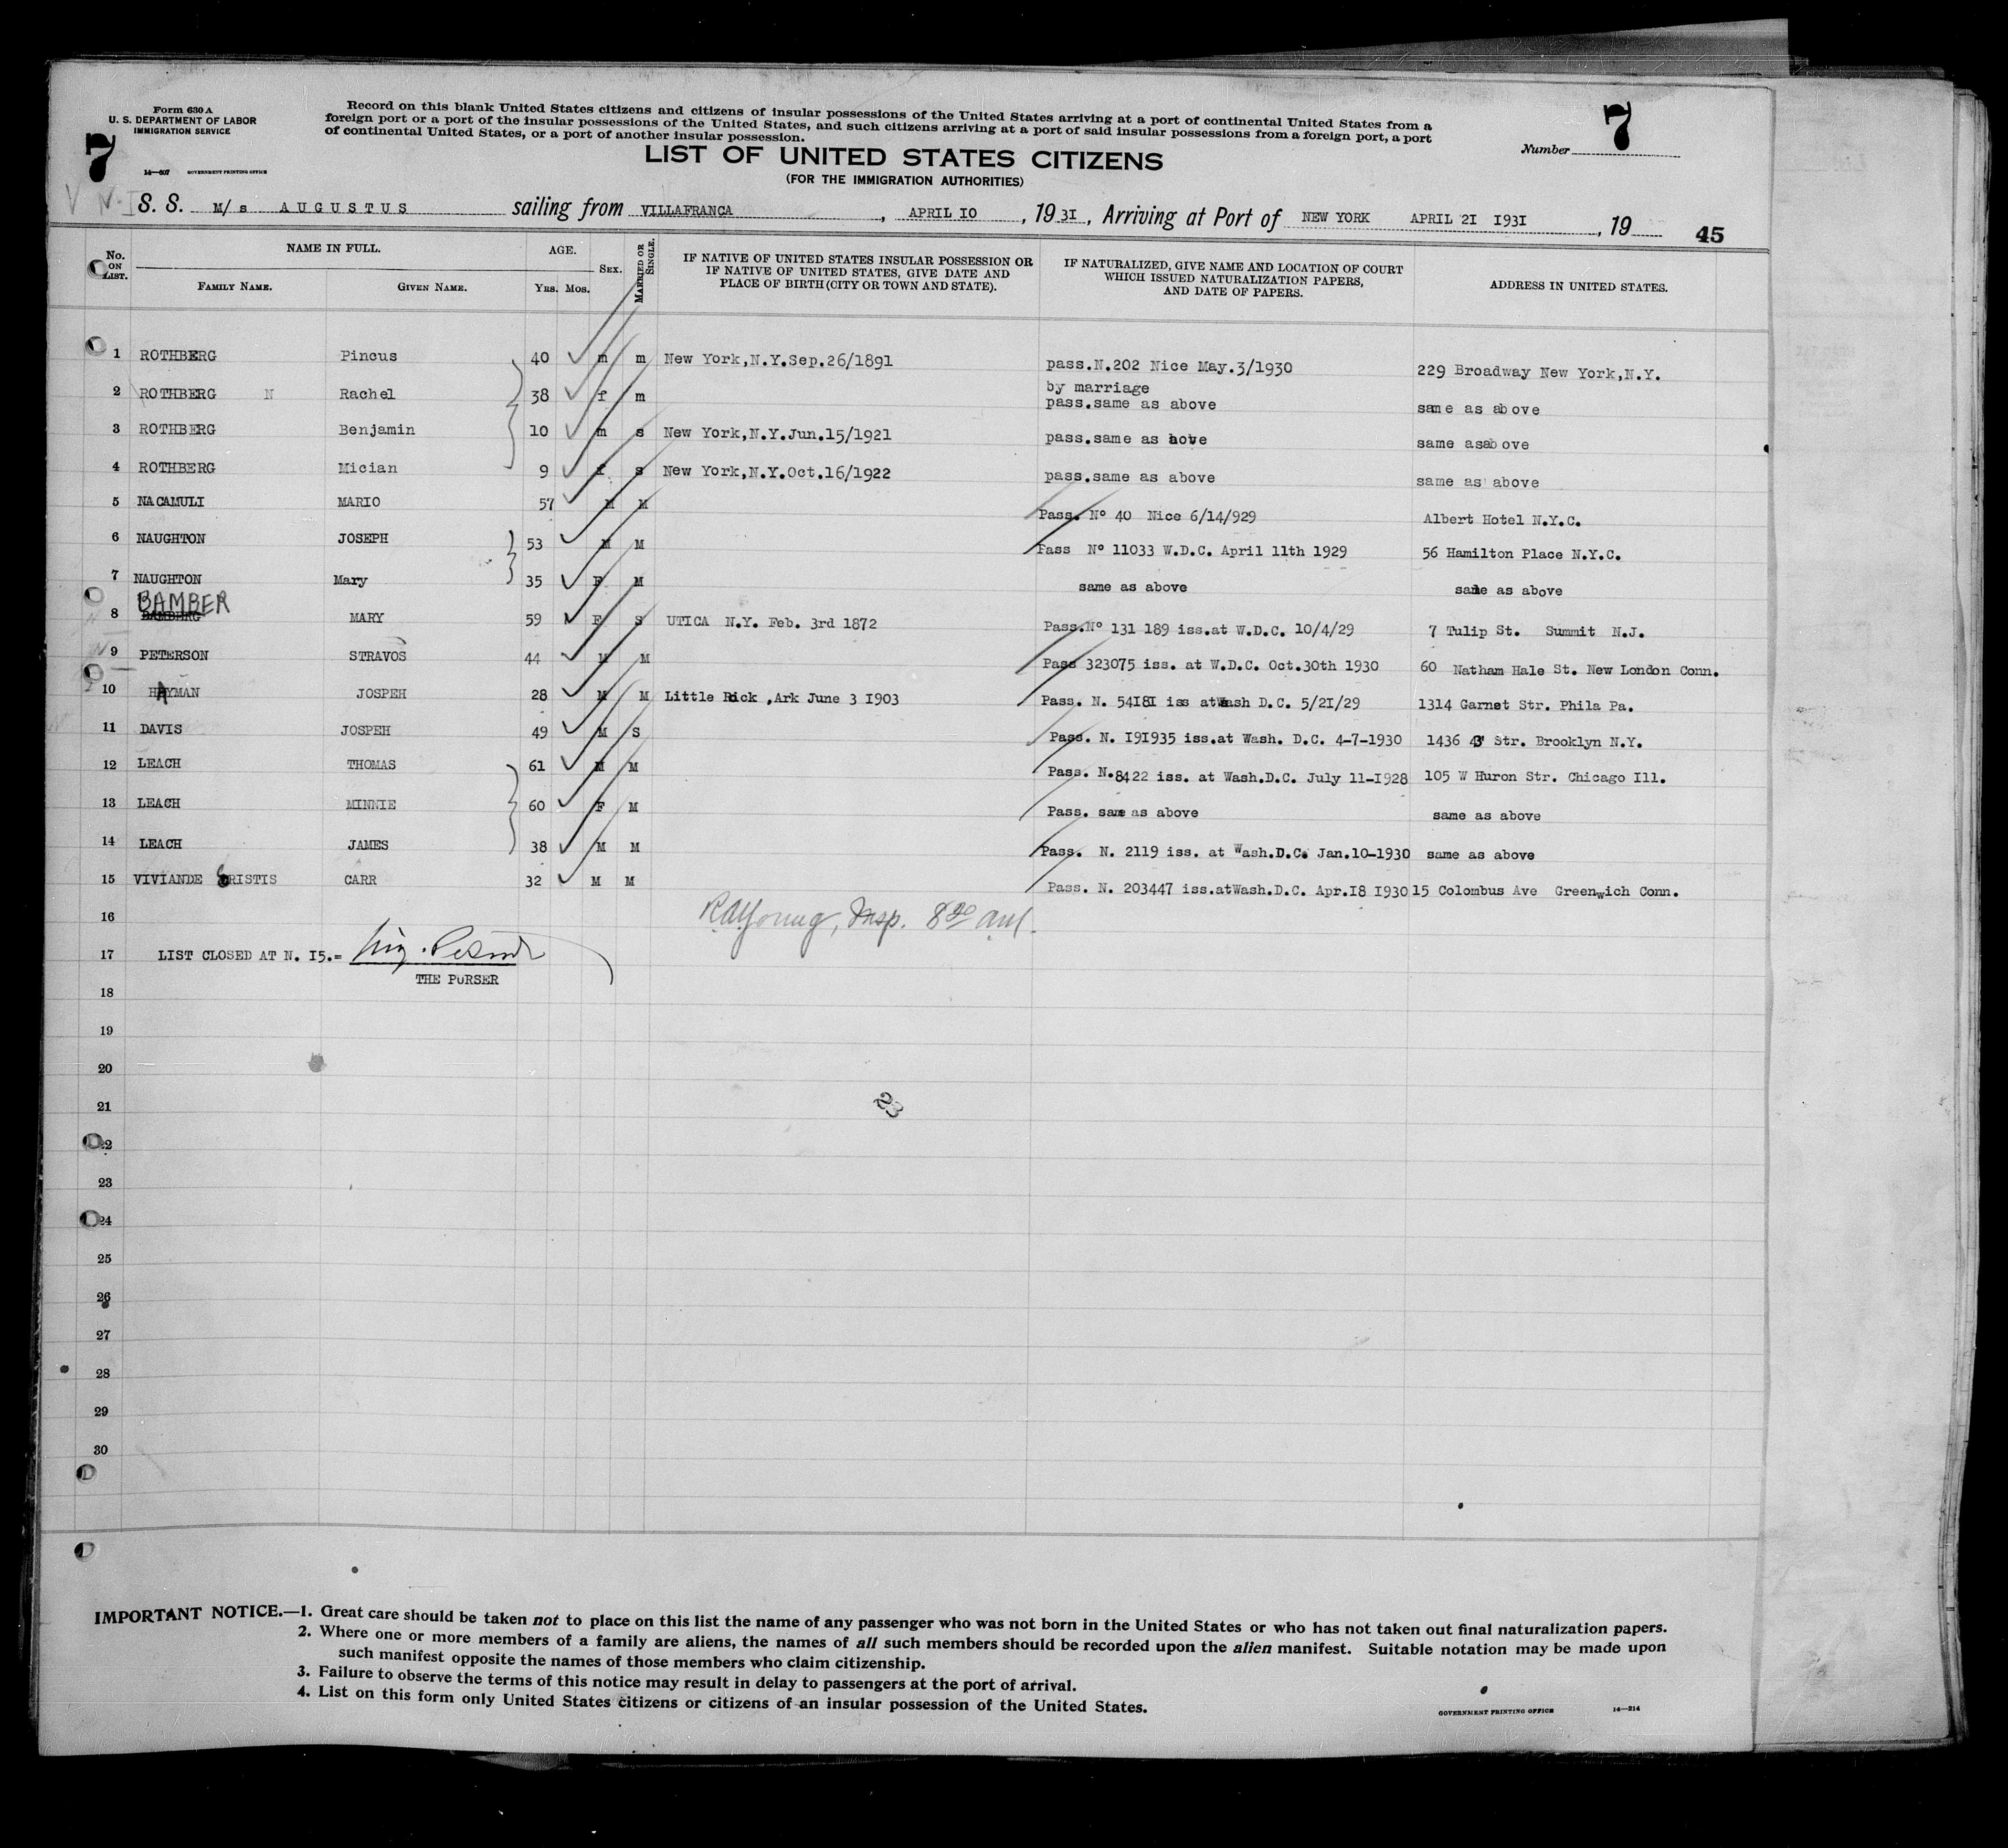 Form 630 A
U. S. DEPARTMENT OF LABOR
IMMIGRATION SERVICE
7
14—607 GOVERNMENT PRINTING OFFICE
Record on this blank United States citizens and citizens of insular possessions of the United States arriving at a port of continental United States from a
foreign port or a port of the insular possessions of the United States, and such citizens arriving at a port of said insular possessions from a foreign port, a port
of continental United States, or a port of another insular possession.
Number 7
LIST OF UNITED STATES CITIZENS
(FOR THE IMMIGRATION AUTHORITIES)
S. S. M/s AUGUSTUS sailing from VILLAFRANCA, APRIL I0, 19 31, Arriving at Port of NEW YORK APRIL 2I I93I, 19
45
No. ON LIST. NAME IN FULL. FAMILY NAME. GIVEN NAME. AGE. YRS. MOS. SEX. MARRIED OR SINGLE. IF NATIVE OF UNITED STATES INSULAR POSSESSION OR IF NATIVE OF UNITED STATES, GIVE DATE AND PLACE OF BIRTH (CITY OR TOWN AND STATE). IF NATURALIZED, GIVE NAME AND LOCATION OF COURT WHICH ISSUED NATURALIZATION PAPERS, AND DATE OF PAPERS. ADDRESS IN UNITED STATES.
1 ROTHBERG Pincus 40 m m New York,N.Y.Sep.26/1891 pass.N.202 Nice May.3/1930 229 Broadway New York,N.Y.
2 ROTHBERG N Rachel 38 f m by marriage pass.same as above same as above
3 ROTHBERG Benjamin 10 m s New York,N.Y.Jun.15/1921 pass.same as above same asabove
4 ROTHBERG Mician 9 f s New York,N.Y.Oct.16/1922 pass.same as above same as above
5 NACAMULI MARIO 57 M M Pass. Nº 40 Nice 6/14/929 Albert Hotel N.Y.C.
6 NAUGHTON JOSEPH 53 M M Pass Nº 11033 W.D.C. April 11th 1929 56 Hamilton Place N.Y.C.
7 NAUGHTON Mary 35 F M same as above same as above
BAMBER
8 BAMBERG MARY 59 F S UTICA N.Y. Feb. 3rd 1872 Pass.Nº 131 189 iss.at W.D.C. 10/4/29 7 Tulip St. Summit N.J.
9 PETERSON STRAVOS 44 M M Pass 323075 iss. at W.D.C. Oct.30th 1930 60 Natham Hale St. New London Conn.
10 HAYMAN JOSPEH 28 M M Little Rock ,Ark June 3 I903 Pass. N. 54I8I iss atWash D.C. 5/2I/29 1314 Garnet Str. Phila Pa.
11 DAVIS JOSPEH 49 M S Pass. N. I9I935 iss.at Wash. D.C. 4-7-1930 1436 43 Str. Brooklyn N.Y.
12 LEACH THOMAS 61 M M Pass. N.8422 iss. at Wash.D.C. July 11-I928 105 W Huron Str. Chicago Ill.
13 LEACH MINNIE 60 F M Pass. same as above same as above
14 LEACH JAMES 38 M M Pass. N. 2119 iss. at Wash.D.C. Jan.10-1930 same as above
15 VIVIANDE CRISTIS CARR 32 M M Pass. N. 203447 iss.atWash.D.C. Apr.I8 I930 15 Colombus Ave Greenwich Conn.
16 RAYoung, Insp. 8 30 am.
17 LIST CLOSED AT N. I5.=
THE PURSER
18
19
20
21
23
22
23
24
25
26
27
28
29
30
IMPORTANT NOTICE.—1. Great care should be taken not to place on this list the name of any passenger who was not born in the United States or who has not taken out final naturalization papers.
2. Where one or more members of a family are aliens, the names of all such members should be recorded upon the alien manifest. Suitable notation may be made upon
such manifest opposite the names of those members who claim citizenship.
3. Failure to observe the terms of this notice may result in delay to passengers at the port of arrival.
4. List on this form only United States citizens or citizens of an insular possession of the United States.
GOVERNMENT PRINTING OFFICE 14—214